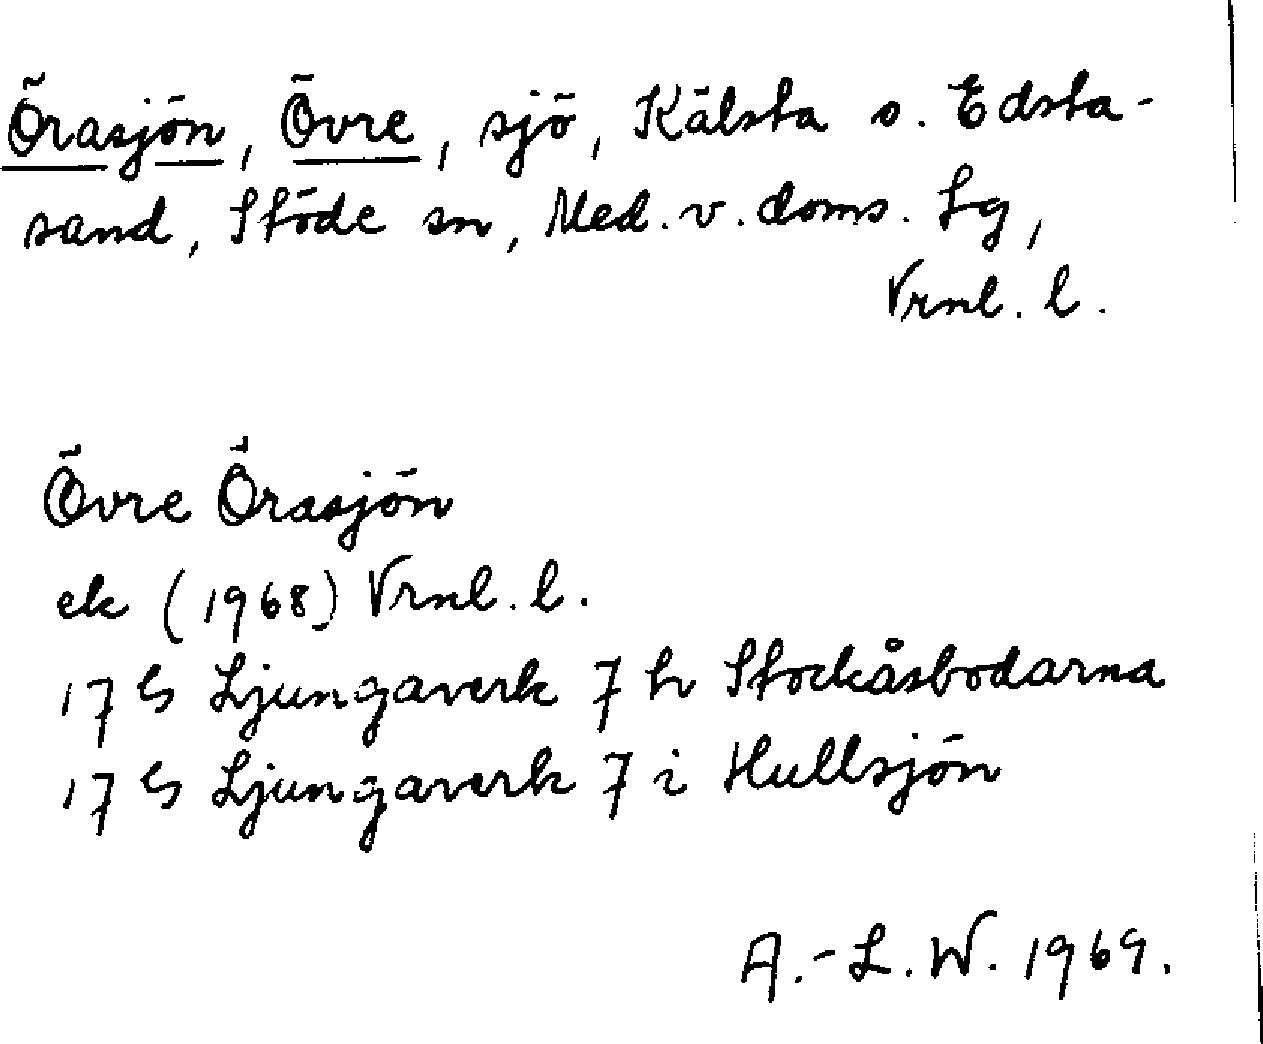 Örasjön, Övre, sjö, Kälsta o. Edsta-
sand, Stöde sn, Med. v. doms. Lg,
Vrnl. l.
Övre Örasjön
ek (1968) Vrnl. l.
17 G Ljungaverk 7 h Stockåsbodarna
17 G Ljungaverk 7 i Hullsjön
A.-L. W. 1969.